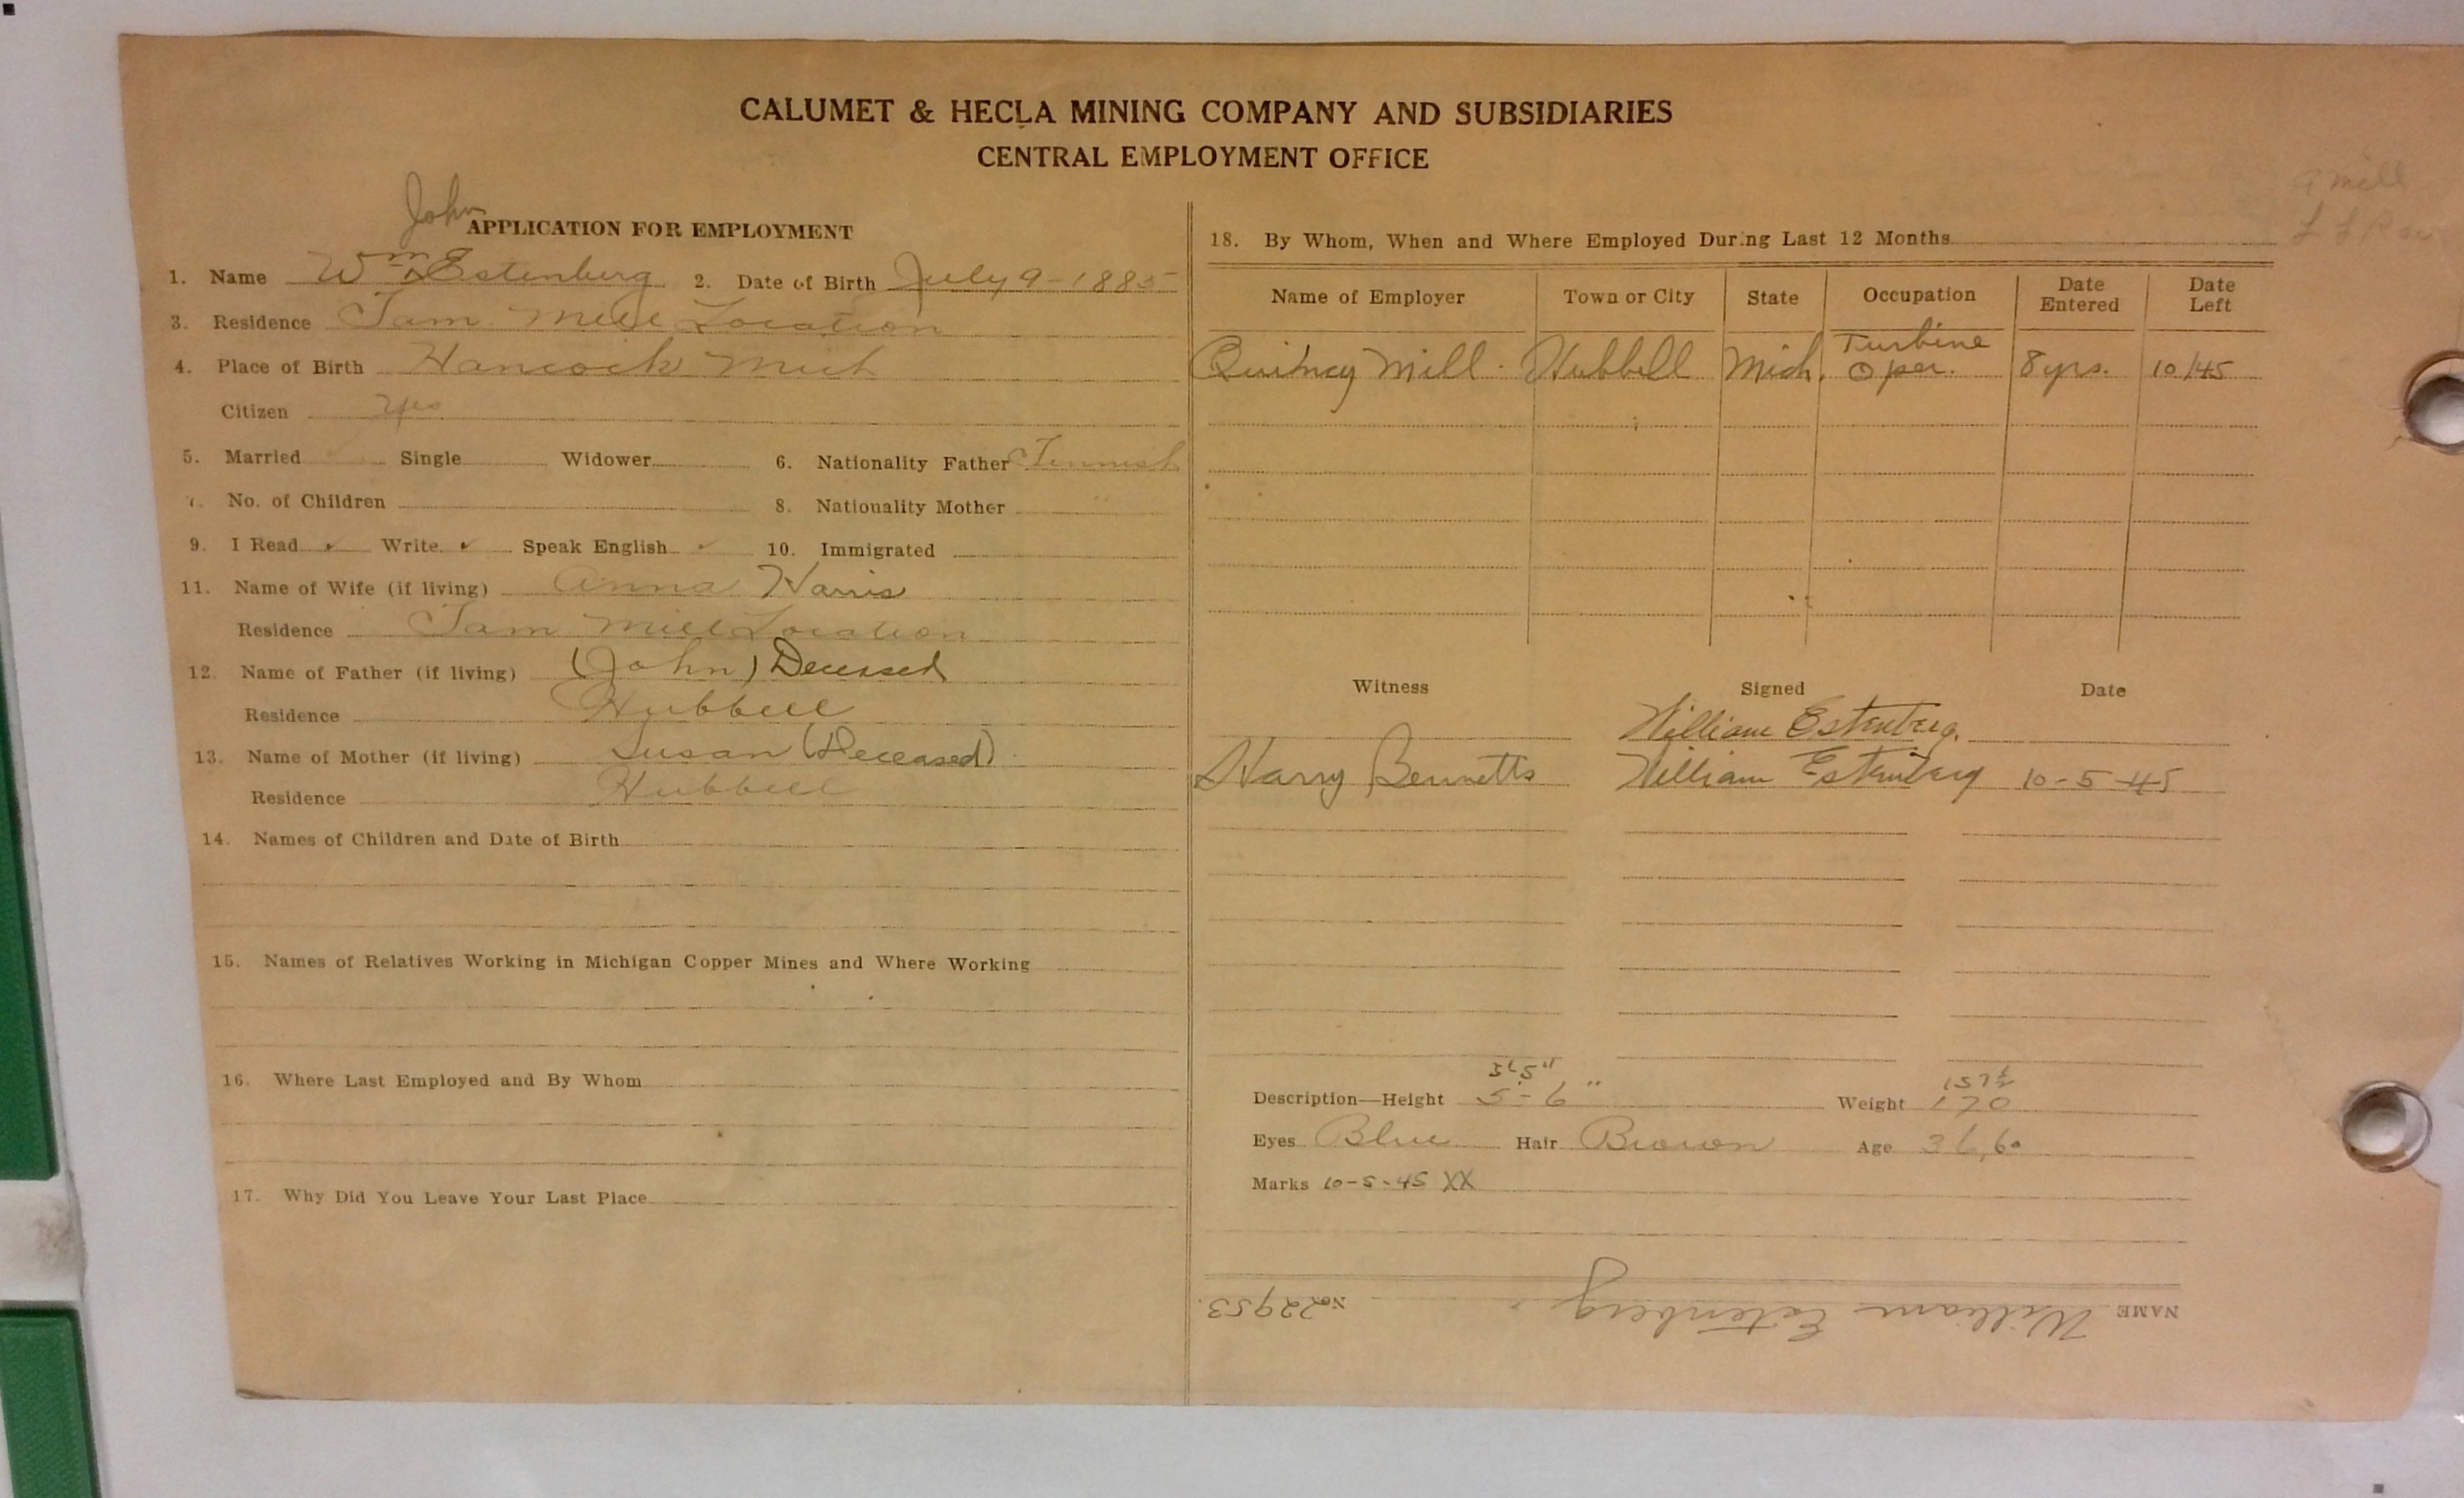 CALUMET & HECLA MINING COMPANY AND SUBSIDIARIES
CENTRAL EMPLOYMENT OFFICE
John
APPLICATION FOR EMPLOYMENT
1. Name Wm Estenberg 2. Date of Birth July 9-1885
3. Residence Tam. Mill Location
4. Place of Birth Hancock Mich
Citizen Yes
5. Married Single Widower 6. Nationality Father Finnish
7. No. of Children 8. Nationality Mother "
9. I Read ✓ Write ✓ Speak English ✓ 10. Immigrated
11. Name of Wife (if living) Anna Harris
Residence Tam Mill Location
12. Name of Father (if living) (John) Deceased
Residence Hubbell
13. Name of Mother (if living) Susan (Deceased)
Residence Hubbell
14. Names of Children and Date of Birth
15. Names of Relatives Working in Michigan Copper Mines and Where Working
16. Where Last Employed and By Whom
17. Why Did You Leave Your Last Place
mill
18. By Whom, When and Where Employed During Last 12 Months
Name of Employer Town or City State Occupation Date Entered Date Left
Quincy Mill. Hubbell Mich. Turbine Oper. 8 yrs. 10/45
Witness Signed Date
William Estenberg.
Harry Bennetts William Estenberg 10-5-45
5'5" 157½
Description—Height 5-6" Weight 170
Eyes Blue Hair Brown Age 36, 60
Marks 10-5-45 XX
NAME William Estenberg. No. 22953.